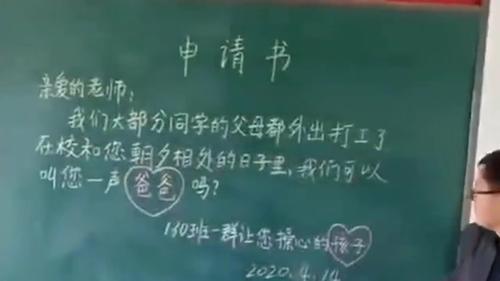 申请书
亲爱的老师:
我们大部分同学的父母都外出打工了
在校和您朝夕相处的日子里,我们可以
叫您一声爸爸吗?
130班一群让您操心的孩子
2020.4.14